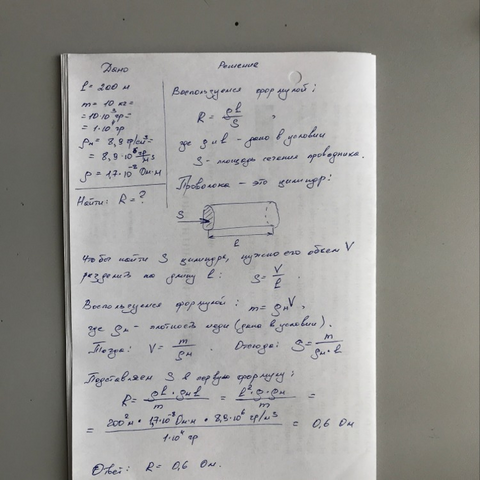 Дано
ℓ = 200 м
m = 10 кг =
= 10·10³ гр =
= 1·10⁴ гр
ρм = 8,9 гр/см³ =
= 8,9·10⁶ гр/м³
ρ = 1,7·10⁻⁸ Ом·м
Найти: R = ?
Решение
Воспользуемся формулой:
R = ρℓ/S ,
где ρ и ℓ - дано в условии
S - площадь сечения проводника.
Проволока - это цилиндр:
S
ℓ
Чтобы найти S цилиндра, нужно его объем V
разделить на длину ℓ: S = V/ℓ .
Воспользуемся формулой: m = ρмV,
где ρм - плотность меди (дано в условии).
Тогда: V = m/ρм . Отсюда: S = m/ρм·ℓ
Подставляем S в первую формулу:
R = ρℓ·ρмℓ/m = ℓ²·ρ·ρм/m =
= 200² м · 1,7·10⁻⁸ Ом·м · 8,9·10⁶ гр/м³ / 1·10⁴ гр = 0,6 Ом
Ответ: R = 0,6 Ом.